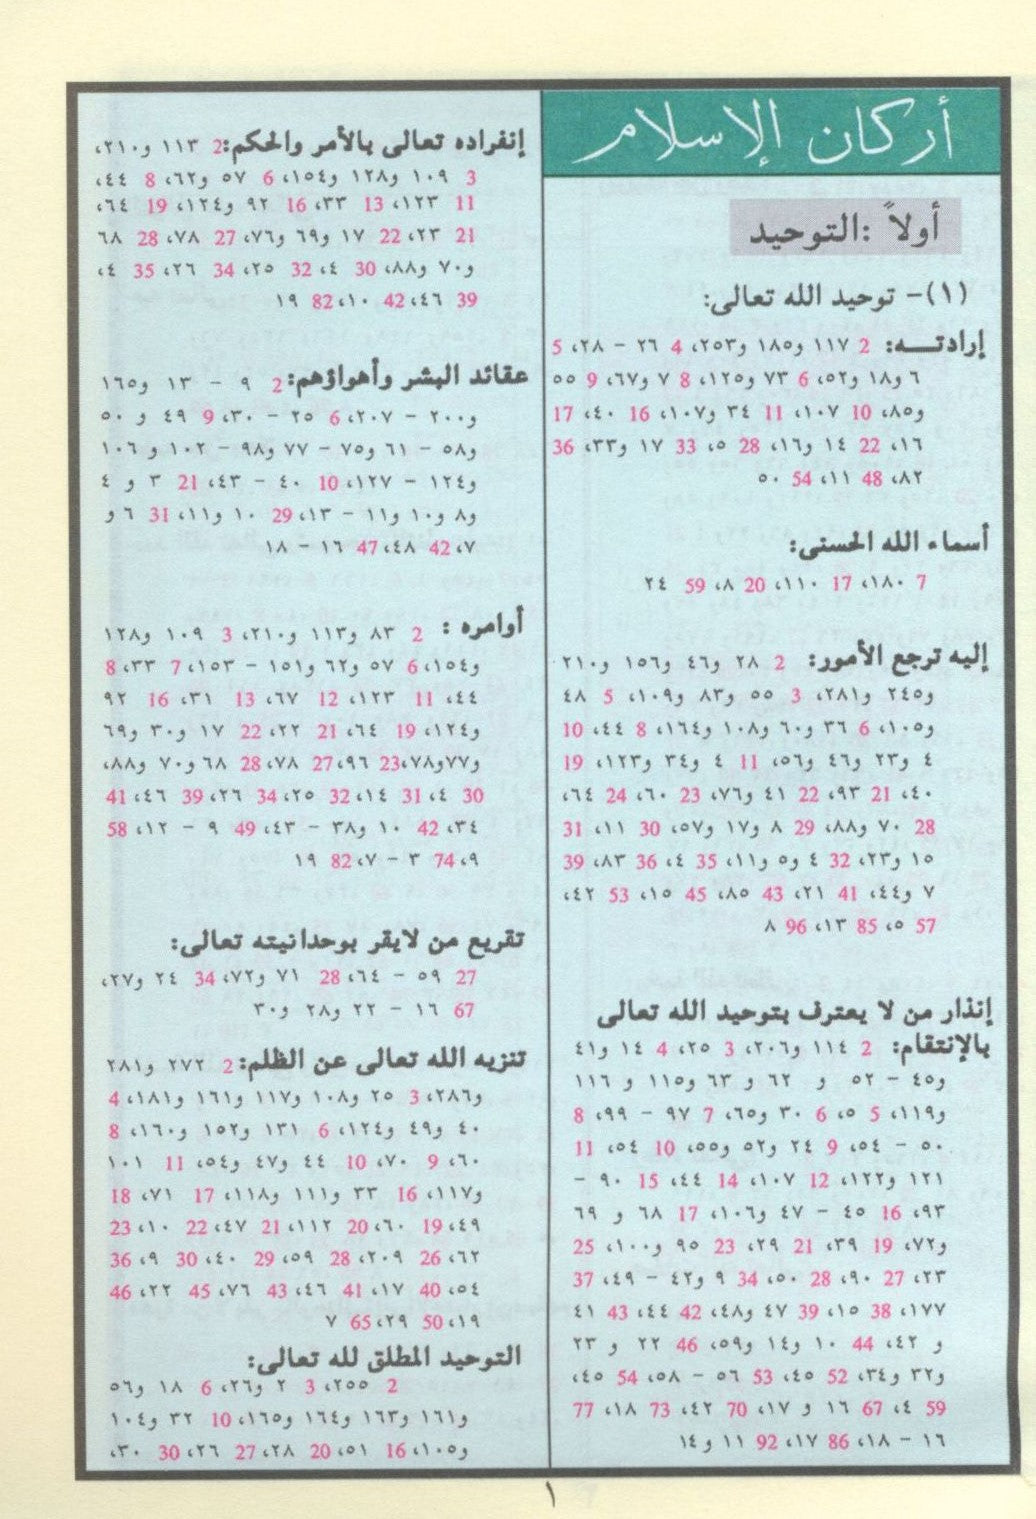 أركان الإسلام
أولاً :التوحيد
(١)- توحيد الله تعالى:
إرادتـــه: 2 ١١٧ و١٨٥ و٢٥٣، 4 ٢٦ - ٢٨، 5
٦ و١٨ و٥٢، 6 ٧٣ و١٢٥، 8 ٧ و٦٧، 9 ٥٥
و٨٥، 10 ١٠٧، 11 ٣٤ و١٠٧، 16 ٤٠، 17
١٦، 22 ١٤ و١٦، 28 ٥، 33 ١٧ و٣٣، 36
٨٢، 48 ١١، 54 ٥٠
أسماء الله الحسنى:
7 ١٨٠، 17 ١١٠، 20 ٨، 59 ٢٤
إليه ترجع الأمور: 2 ٢٨ و٤٦ و١٥٦ و٢١٠
و٢٤٥ و٢٨١، 3 ٥٥ و٨٣ و١٠٩، 5 ٤٨
و١٠٥، 6 ٣٦ و٦٠ و١٠٨ و١٦٤، 8 ٤٤، 10
٤ و٢٣ و٤٦ و٥٦، 11 ٤ و٣٤ و١٢٣، 19
٤٠، 21 ٩٣، 22 ٤١ و٧٦، 23 ٦٠، 24 ٦٤،
28 ٧٠ و٨٨، 29 ٨ و١٧ و٥٧، 30 ١١، 31
١٥ و٢٣، 32 ٤ و٥ و١١، 35 ٤، 36 ٨٣، 39
٧ و٤٤، 41 ٢١، 43 ٨٥، 45 ١٥، 53 ٤٢،
57 ٥، 85 ١٣، 96 ٨
إنذار من لا يعترف بتوحيد الله تعالى
بالإنتقام: 2 ١١٤ و٢٠٦، 3 ٢٥، 4 ١٤ و٤١
و٤٥ - ٥٢ و ٦٢ و ٦٣ و١١٥ و ١١٦
و١١٩، 5 ٥، 6 ٣٠ و٦٥، 7 ٩٧ - ٩٩، 8
٥٠ - ٥٤، 9 ٢٤ و٥٢ و٥٥، 10 ٥٤، 11
١٢١ و١٢٢، 12 ١٠٧، 14 ٤٤، 15 ٩٠ -
٩٣، 16 ٤٥ - ٤٧ و١٠٦، 17 ٦٨ و ٦٩
و٧٢، 19 ٣٩، 21 ٢٩، 23 ٩٥ و١٠٠، 25
٢٣، 27 ٩٠، 28 ٥٠، 34 ٩ و٤٢ - ٤٩، 37
١٧٧، 38 ١٥، 39 ٤٧ و٤٨، 42 ٤٤، 43 ٤١
و ٤٢، 44 ١٠ و١٤ و٥٩، 46 ٢٢ و ٢٣
و٣٢ و٣٤، 52 ٤٥، 53 ٥٦ - ٥٨، 54 ٤٥،
59 ٤، 67 ١٦ و ١٧، 70 ٤٢، 73 ١٨، 77
١٦ - ١٨، 86 ١٧، 92 ١١ و١٤
إنفراده تعالى بالأمر والحكم:2 ١١٣ و٢١٠،
3 ١٠٩ و١٢٨ و١٥٤، 6 ٥٧ و٦٢، 8 ٤٤،
11 ١٢٣، 13 ٣٣، 16 ٩٢ و١٢٤، 19 ٦٤،
21 ٢٣، 22 ١٧ و٦٩ و٧٦، 27 ٧٨، 28 ٦٨
و٧٠ و٨٨، 30 ٤، 32 ٢٥، 34 ٢٦، 35 ٤،
39 ٤٦، 42 ١٠، 82 ١٩
عقائد البشر وأهواؤهم:2 ٩ - ١٣ و١٦٥
و٢٠٠ - ٢٠٧، 6 ٢٥ - ٣٠، 9 ٤٩ و ٥٠
و٥٨ - ٦١ و٧٥ - ٧٧ و٩٨ - ١٠٢ و ١٠٦
و١٢٤ - ١٢٧، 10 ٤٠ - ٤٣، 21 ٣ و ٤
و٨ و١٠ و١١ - ١٣، 29 ١٠ و١١، 31 ٦ و
٧، 42 ٤٨، 47 ١٦ - ١٨
أوامره : 2 ٨٣ و١١٣ و٢١٠، 3 ١٠٩ و١٢٨
و١٥٤، 6 ٥٧ و٦٢ و١٥١ - ١٥٣، 7 ٣٣، 8
٤٤، 11 ١٢٣، 12 ٦٧، 13 ٣١، 16 ٩٢
و١٢٤، 19 ٦٤، 21 ٢٢، 22 ١٧ و٣٠ و٦٩
و٧٧و٧٨،23 ٩٦، 27 ٧٨، 28 ٦٨ و٧٠ و٨٨،
30 ٤، 31 ١٤، 32 ٢٥، 34 ٢٦، 39 ٤٦، 41
٣٤، 42 ١٠ و٣٨ - ٤٣، 49 ٩ - ١٢، 58
٩، 74 ٣ - ٧، 82 ١٩
تقريع من لايقر بوحدانيته تعالى:
27 ٥٩ - ٦٤، 28 ٧١ و٧٢، 34 ٢٤ و٢٧،
67 ١٦ - ٢٢ و٢٨ و٣٠
تنزيه الله تعالى عن الظلم:2 ٢٧٢ و٢٨١
و٢٨٦، 3 ٢٥ و١٠٨ و١١٧ و١٦١ و١٨١، 4
٤٠ و٤٩ و١٢٤، 6 ١٣١ و١٥٢ و١٦٠، 8
٦٠، 9 ٧٠، 10 ٤٤ و٤٧ و٥٤، 11 ١٠١
و١١٧، 16 ٣٣ و١١١ و١١٨، 17 ٧١، 18
٤٩، 19 ٦٠، 20 ١١٢، 21 ٤٧، 22 ١٠، 23
٦٢، 26 ٢٠٩، 28 ٥٩، 29 ٤٠، 30 ٩، 36
٥٤، 40 ١٧، 41 ٤٦، 43 ٧٦، 45 ٢٢، 46
١٩، 50 ٢٩، 65 ٧
التوحيد المطلق لله تعالى:
2 ٢٥٥، 3 ٢ و٢٦، 6 ١٨ و٥٦
و١٦١ و١٦٣ و١٦٤ و١٦٥، 10 ٣٢ و١٠٤
و١٠٥، 16 ٥١، 20 ٢٨، 27 ٢٦، 30 ٣٠،
١